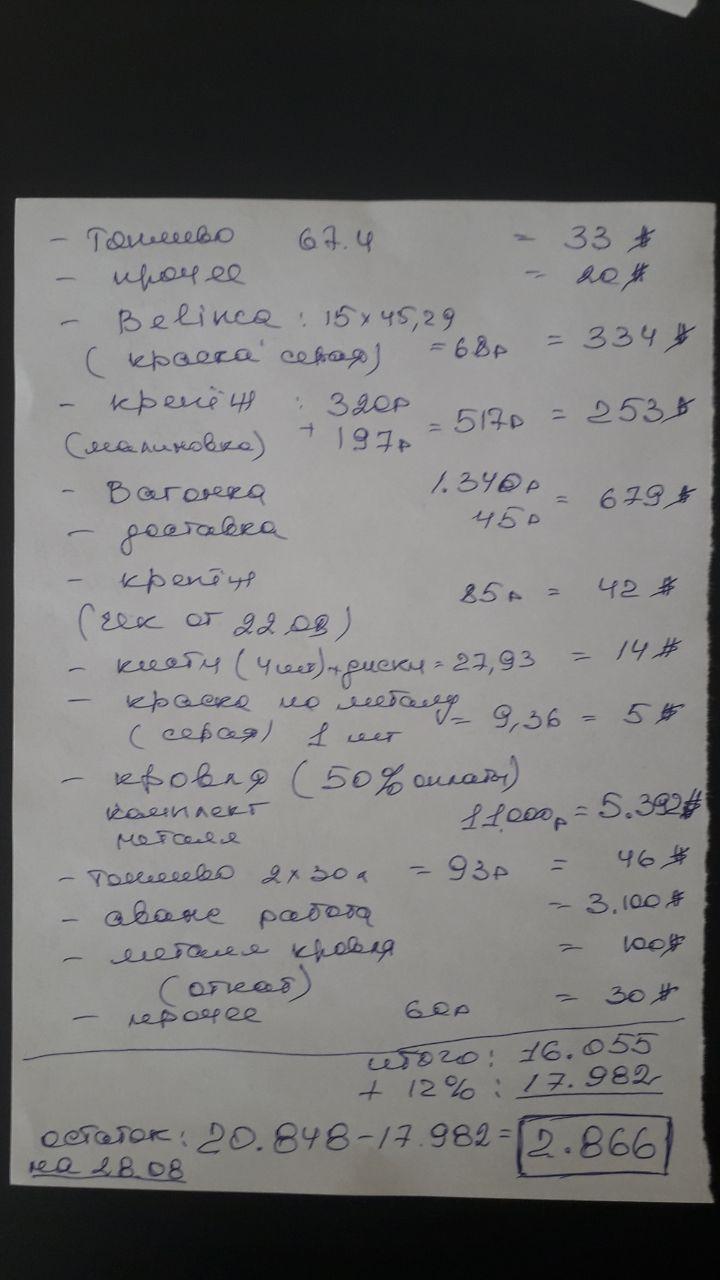 - Топливо 67.4 = 33 $
- прочее = 20 $
- Belinca : 15 x 45,29
(краска серая) = 68р = 334 $
- крепёж : 320р
(малиновка) + 197р = 517р = 253 $
- Вагонка 1.340р
- доставка 45р = 679 $
- крепёж 85р = 42 $
(чек от 22.08)
- кисти (4шт) + диски = 27,93 = 14 $
- краска по металу
(серая) 1 шт = 9,36 = 5 $
- кровля (50% оплаты)
комплект 11.000р = 5.392 $
металл
- Топливо 2 x 30л = 93р = 46 $
- аванс работа = 3.100 $
- металл кровля = 100 $
(откат)
- прочее 60р = 30 $
итого : 16.055
+ 12% : 17.982
остаток : 20.848 - 17.982 = 2.866
на 28.08